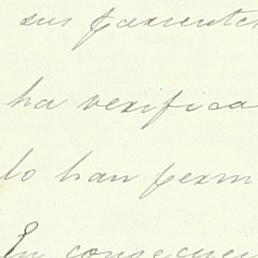 sus pariente
ha verifica
lo han perm
En consecuen